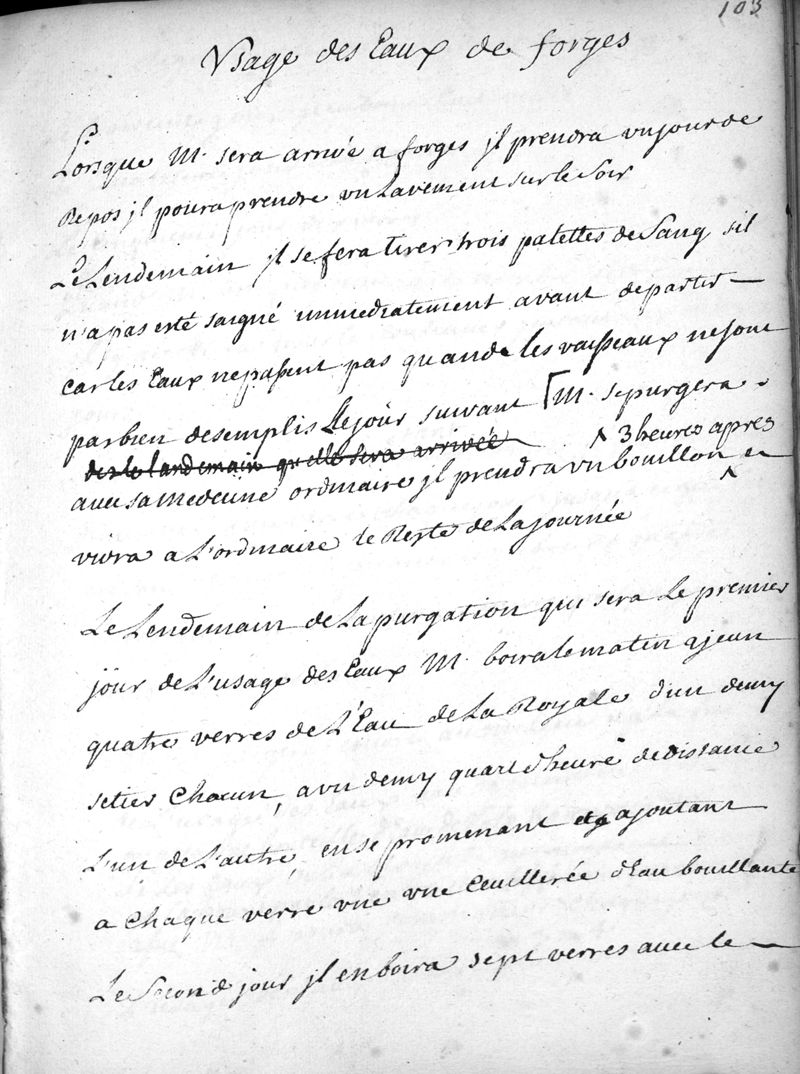 103
Usage des Eaux de forges
Lorsque M. sera arrivé a forges jl prendra un jour de
Repos jl poura prendre un Lavement sur le Soir
Le Lendemain jl se fera tirer trois palettes de Sang sil
n'a pas esté saigné immediatement avant de partir
car les Eaux ne passent pas quand les vaisseaux ne sont
pas bien desemplis Le jour suivant [M. se purgera
des le landemain qu'elle sera arrivée ^ 3 heures apres
avec sa medecine ordinaire jl prendra un bouillon ^ et
vivra a L'ordinaire le Reste de La journée
Le Lendemain de La purgation qui sera Le premier
jour de L'usage des Eaux M. boira le matin a jeun
quatre verres de L'Eau de La Royale d'un demy
setier Chacun, a un demy quart d'heure de distance
L'un de L'autre, en se promenant et ajoutant
a Chaque verre une Cuillerée d'Eau bouillante
Le Second jour jl en boira sept verres avec le